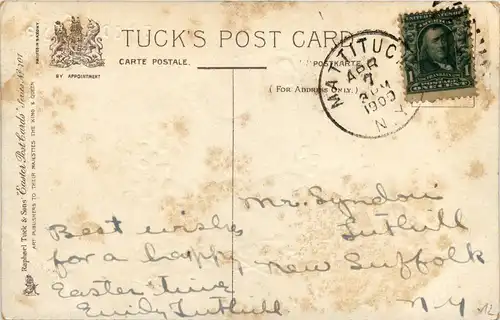 TUCK'S POST CARD
CARTE POSTALE. POSTKARTE.
(FOR ADDRESS ONLY.)
BY APPOINTMENT
Raphael Tuck & Sons' "Easter Post Cards" Series No. 707
ART PUBLISHERS TO THEIR MAJESTIES THE KING & QUEEN
MATTITUCK
APR
7
1909
N.Y.
1 1
ONE CENT
Best wishes
for a happy
Easter time
Emily Tuthill
Mr. Lyndon
Tuthill
New Suffolk
N-Y